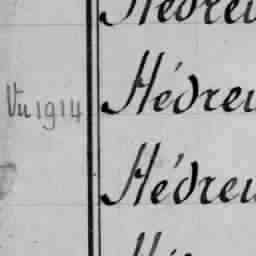 Hédreu
Vu 1914 Hédreu
Hédreu